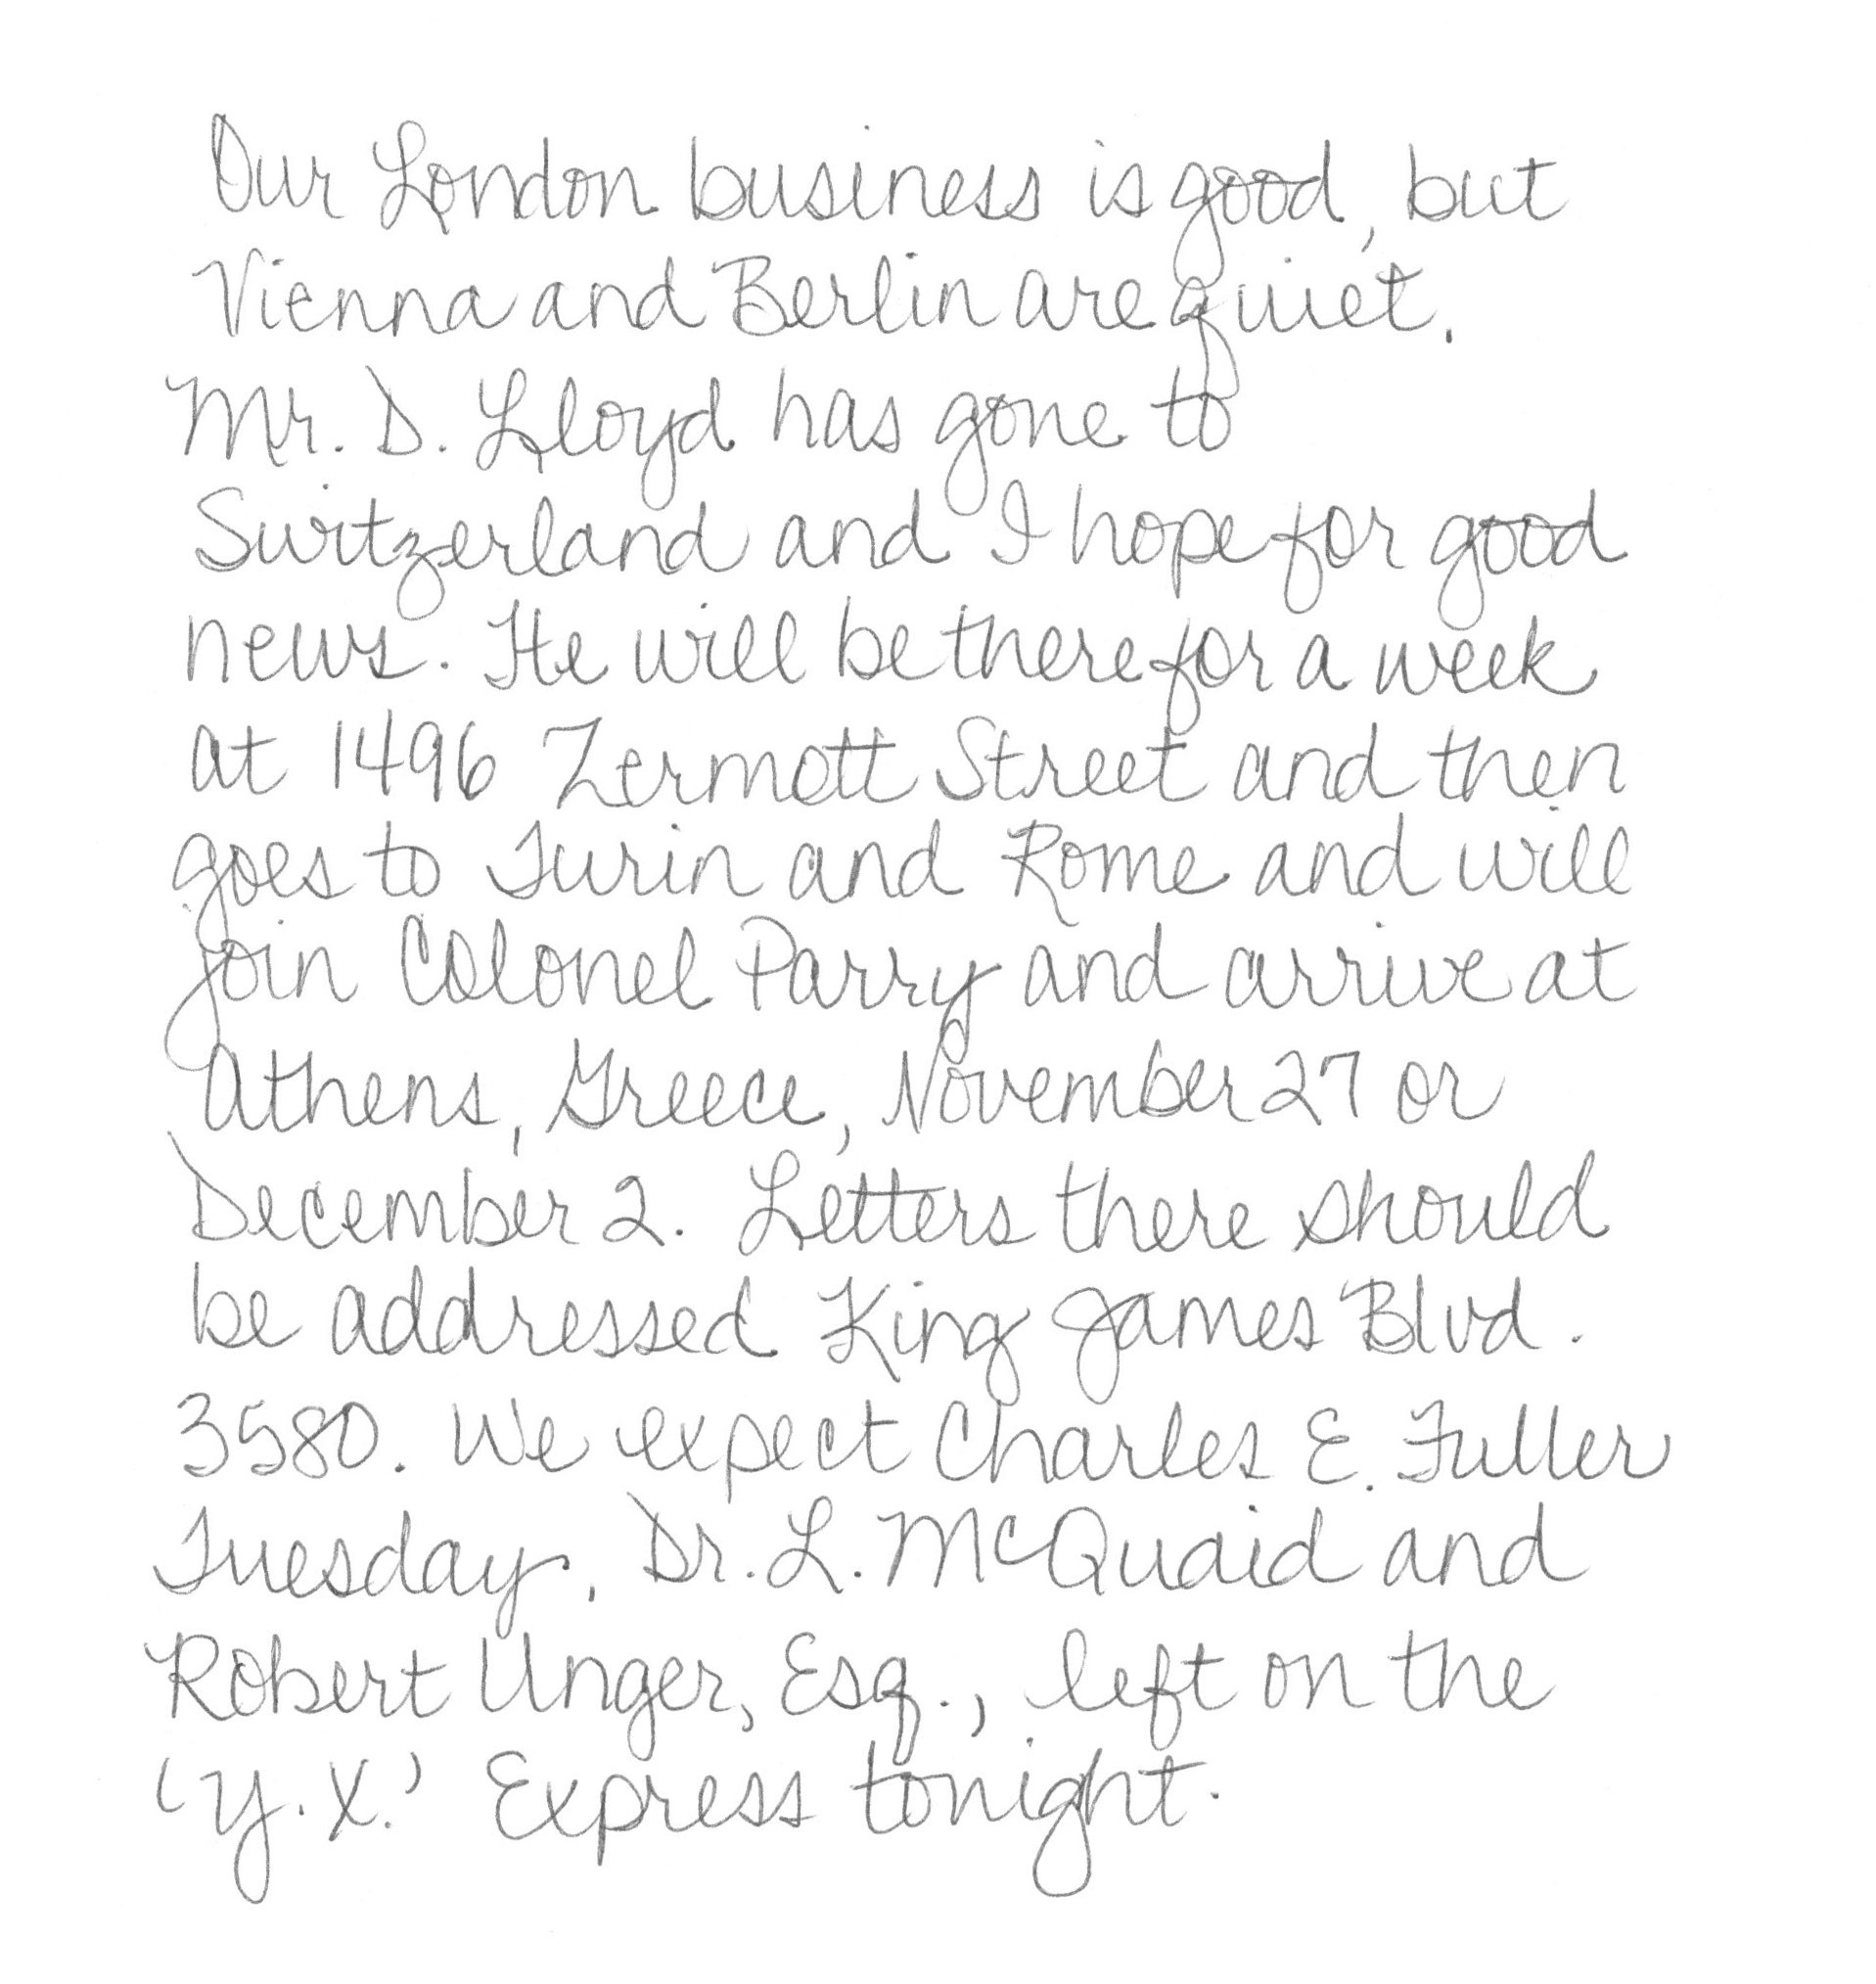 Our London business is good, but
Vienna and Berlin are quiet.
Mr. D. Lloyd has gone to
Switzerland and I hope for good
news. He will be there for a week
at 1496 Zermott Street and then
goes to Turin and Rome and will
join Colonel Parry and arrive at
Athens, Greece, November 27 or
December 2. Letters there should
be addressed King James Blvd.
3580. We expect Charles E. Fuller
Tuesday. Dr. L. McQuaid and
Robert Unger, Esq., left on the
'Y.X.' Express tonight.